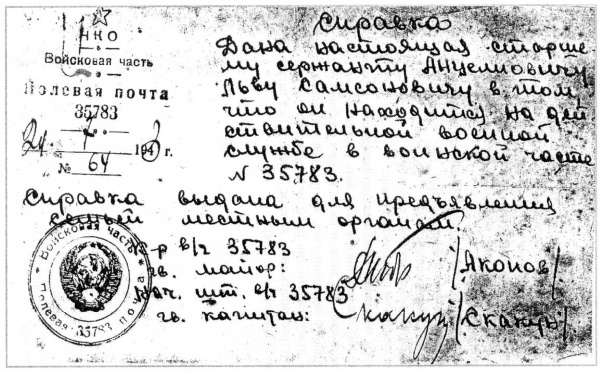 НКО
Войсковая часть
Полевая почта
35783
194 г.
№ 64
Справка
Дана настоящая старше
му сержанту Анцелиовичу
Льву Самсоновичу в том,
что он находится на дей
ствительной военной
службе в воинской части
N 35783.
Справка выдана для предъявления
семьей местным органам.
К-р в/ч 35783
гв. майор: /Яконов/
Нач. шт. в/ч 35783
гв. капитан: /Скакун/
Войсковая часть
Полевая почта
35783